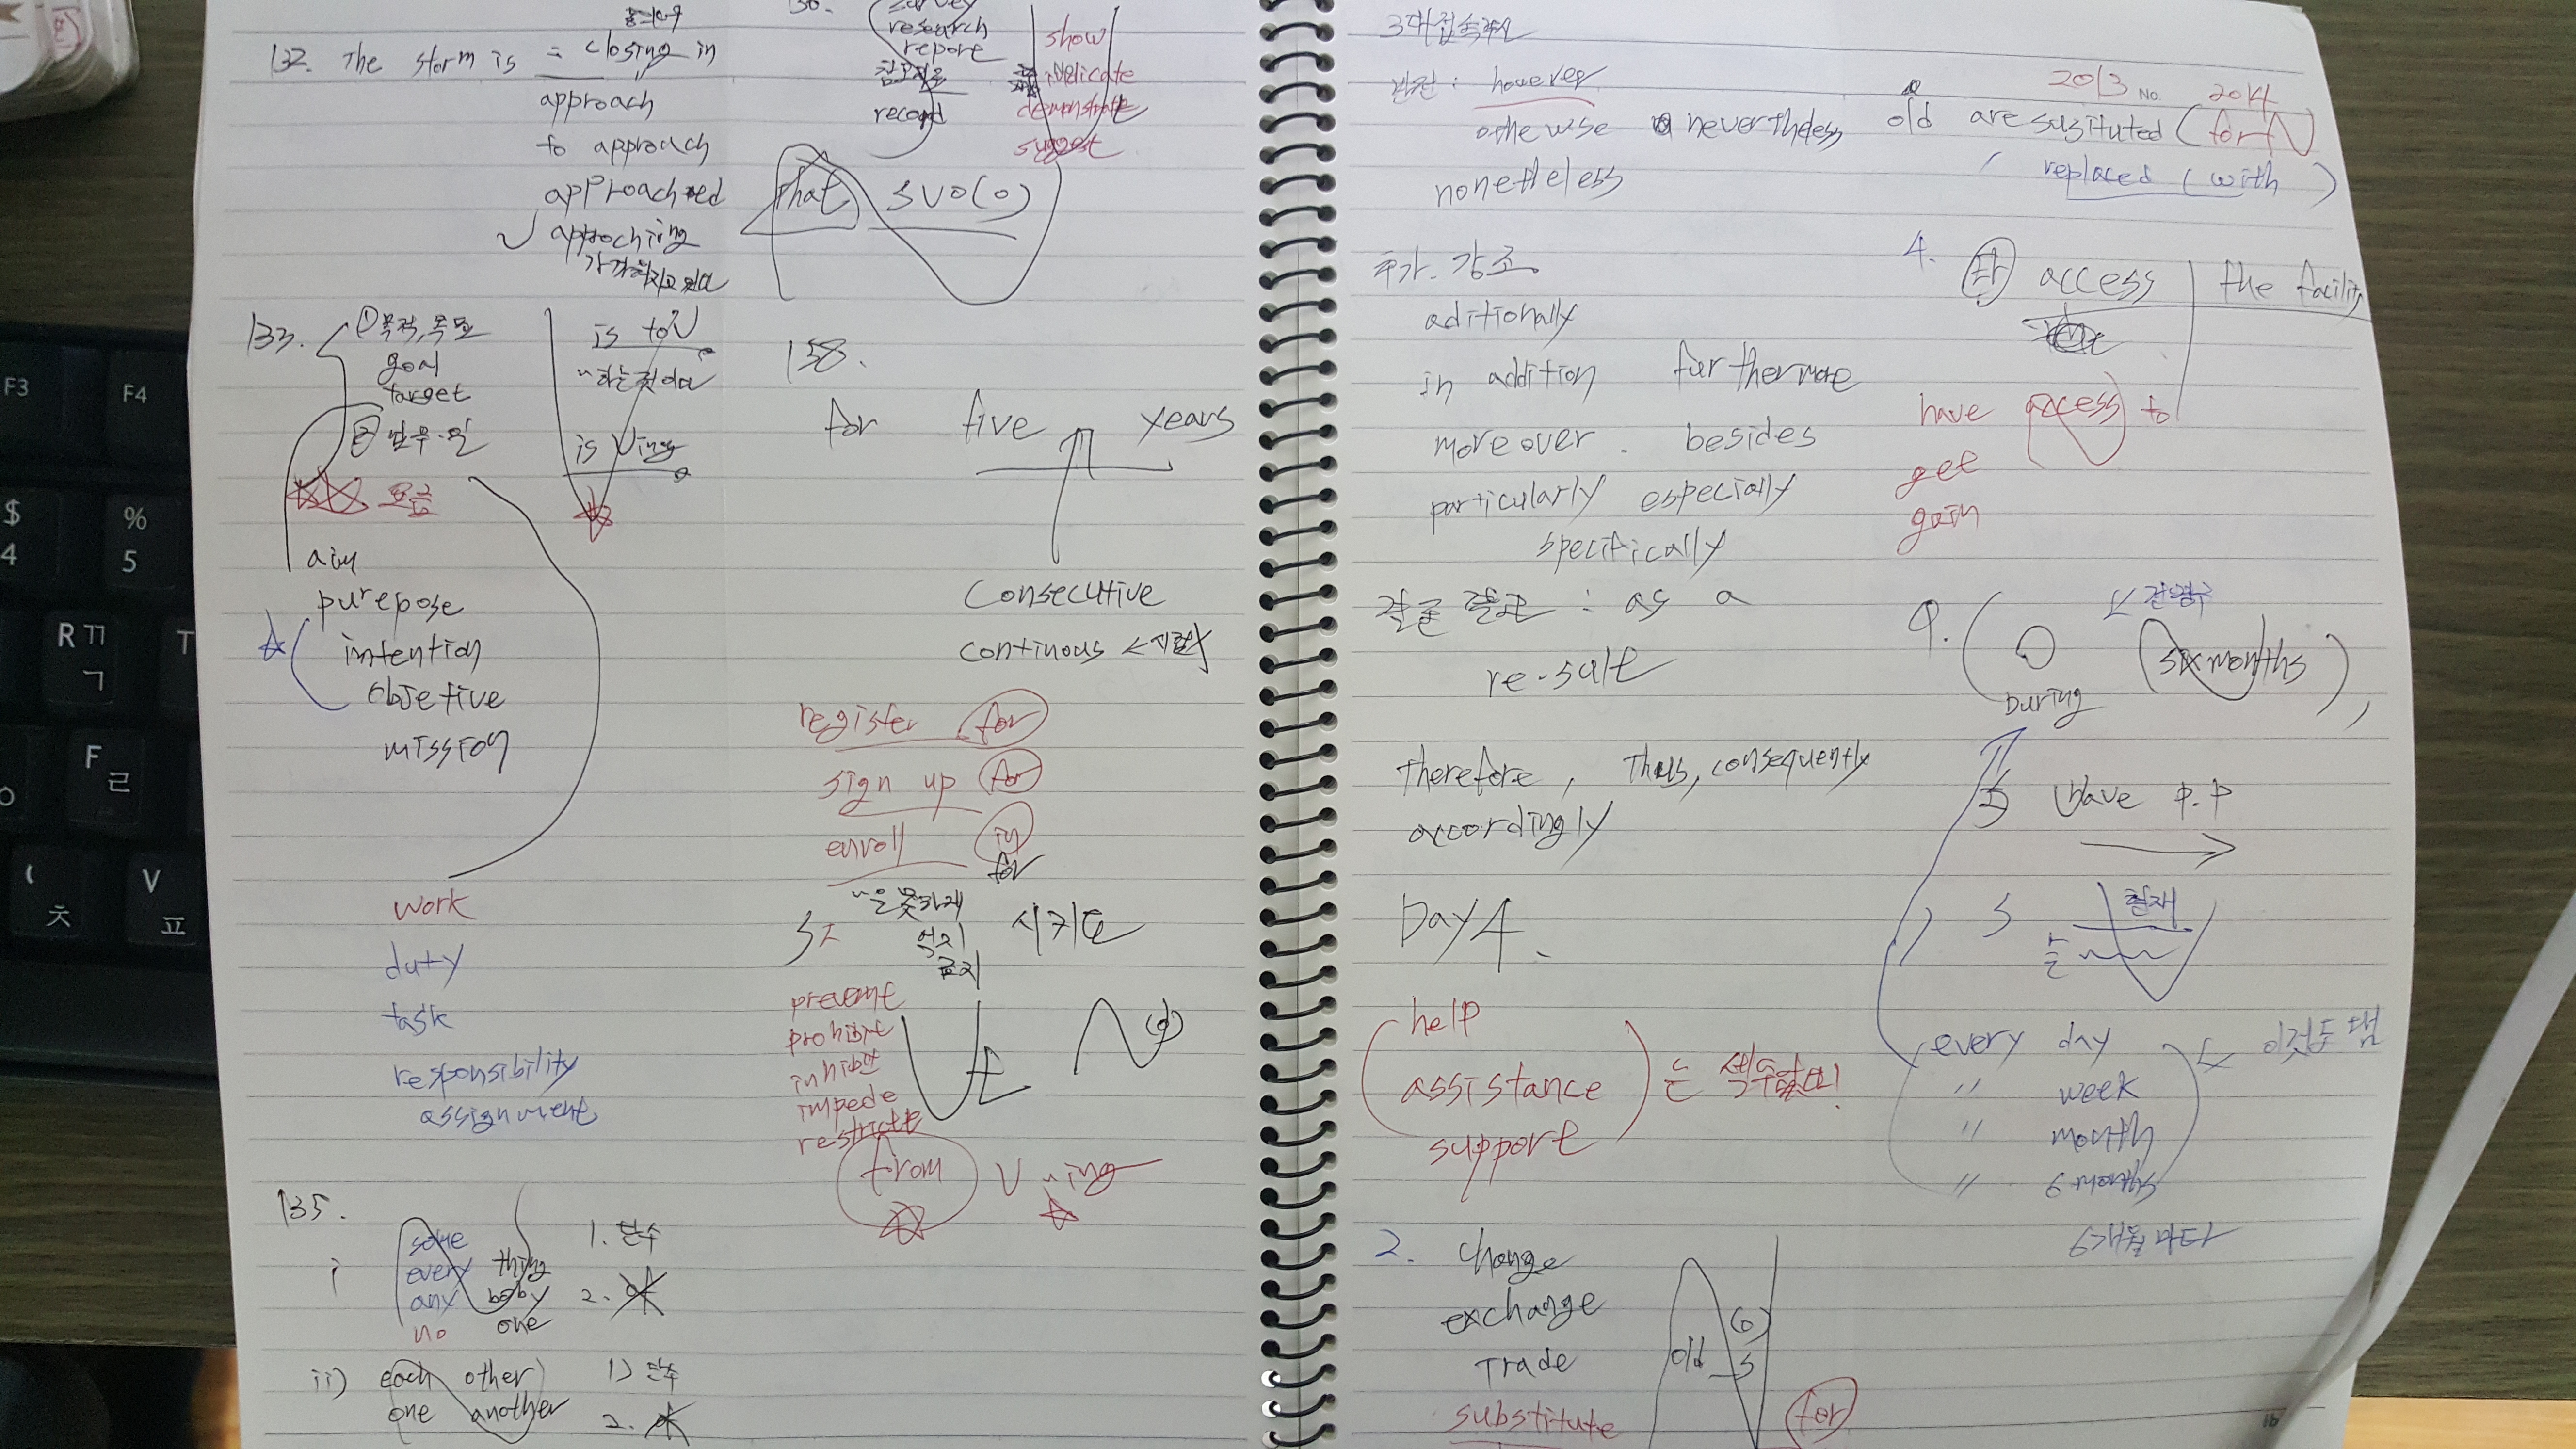 동의어
132. The storm is = closing in
approach
to approach
approached
approching
133. ① 목적, 목표
goal
target
② 업무·일
요금
aim
purepose
intention
Objetive
mission
is to V
~하는것이다
is Ving
work
duty
task
responsibility
assignment
135.
i
some
every thing
any boby
no one
1. 단수
2.
ii) each other
one another
1) 단수
2.
136. survey
research
repore
record
show
indicate
demonstrate
suggest
that SVO(O)
138.
for five years
Consecutive
continous ←
register for
sign up for
enroll in
for
~을 못하게
억지
금지
시키도
prevent
prohibit
inhibit
impede
restricte
from V ~ing
3대 접속부사
반전 : however
othewise nevertheless
nonetheless
추가. 강조
aditionally
in addition furthermore
moreover. besides
particularly especially
specifically
결론 결과 : as a
re-sult
therefore, Thus, consequently
accordingly
Day 4.
help
assistance
support
는 셀수없다!
2. change
exchange
Trade
substitute
old
(o)
for
2013 No. 2014
old are susituted (for N)
replaced (with )
4. 타 access the facility
have access to
get
gain
9. ( six months ),
During
S have p.p
S 현재
는
every day
" week
" month
" 6 months
이것두 됨
6개월 마다
$
4
%
5
F3
F4
R ㄲ
ㄱ
T
F
ㄹ
ㅊ
V
ㅍ